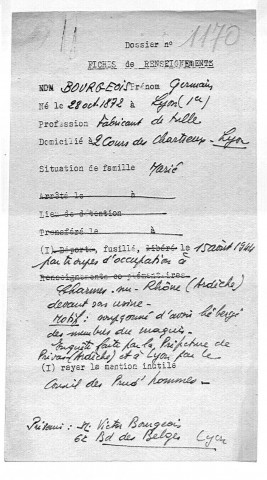 1170
Dossier n°
FICHES de RENSEIGNEMENTS
NOM BOURGEOIS Prénom Germain
Né le 28 oct 1872 à Lyon (1er)
Profession Fabricant de tulle
Domicilié à 2 Cours des Chartreux - Lyon
Situation de famille Marié
Arrêté le à
Lieu de détention
Transféré le à
(I) Déporté, fusillé, libéré le 15 août 1944
par troupes d'occupation à
Renseignements complémentaires
Charmes-sur-Rhône (Ardèche)
devant son usine -
Motif : soupçonné d'avoir hébergé
des membres du maquis -
Enquête faite par la Préfecture de
Privas (Ardèche) et à Lyon par le
(I) rayer la mention inutile
Conseil des Prud'hommes -
Prévenu : Mr Victor Bourgeois
62 Bd des Belges Lyon